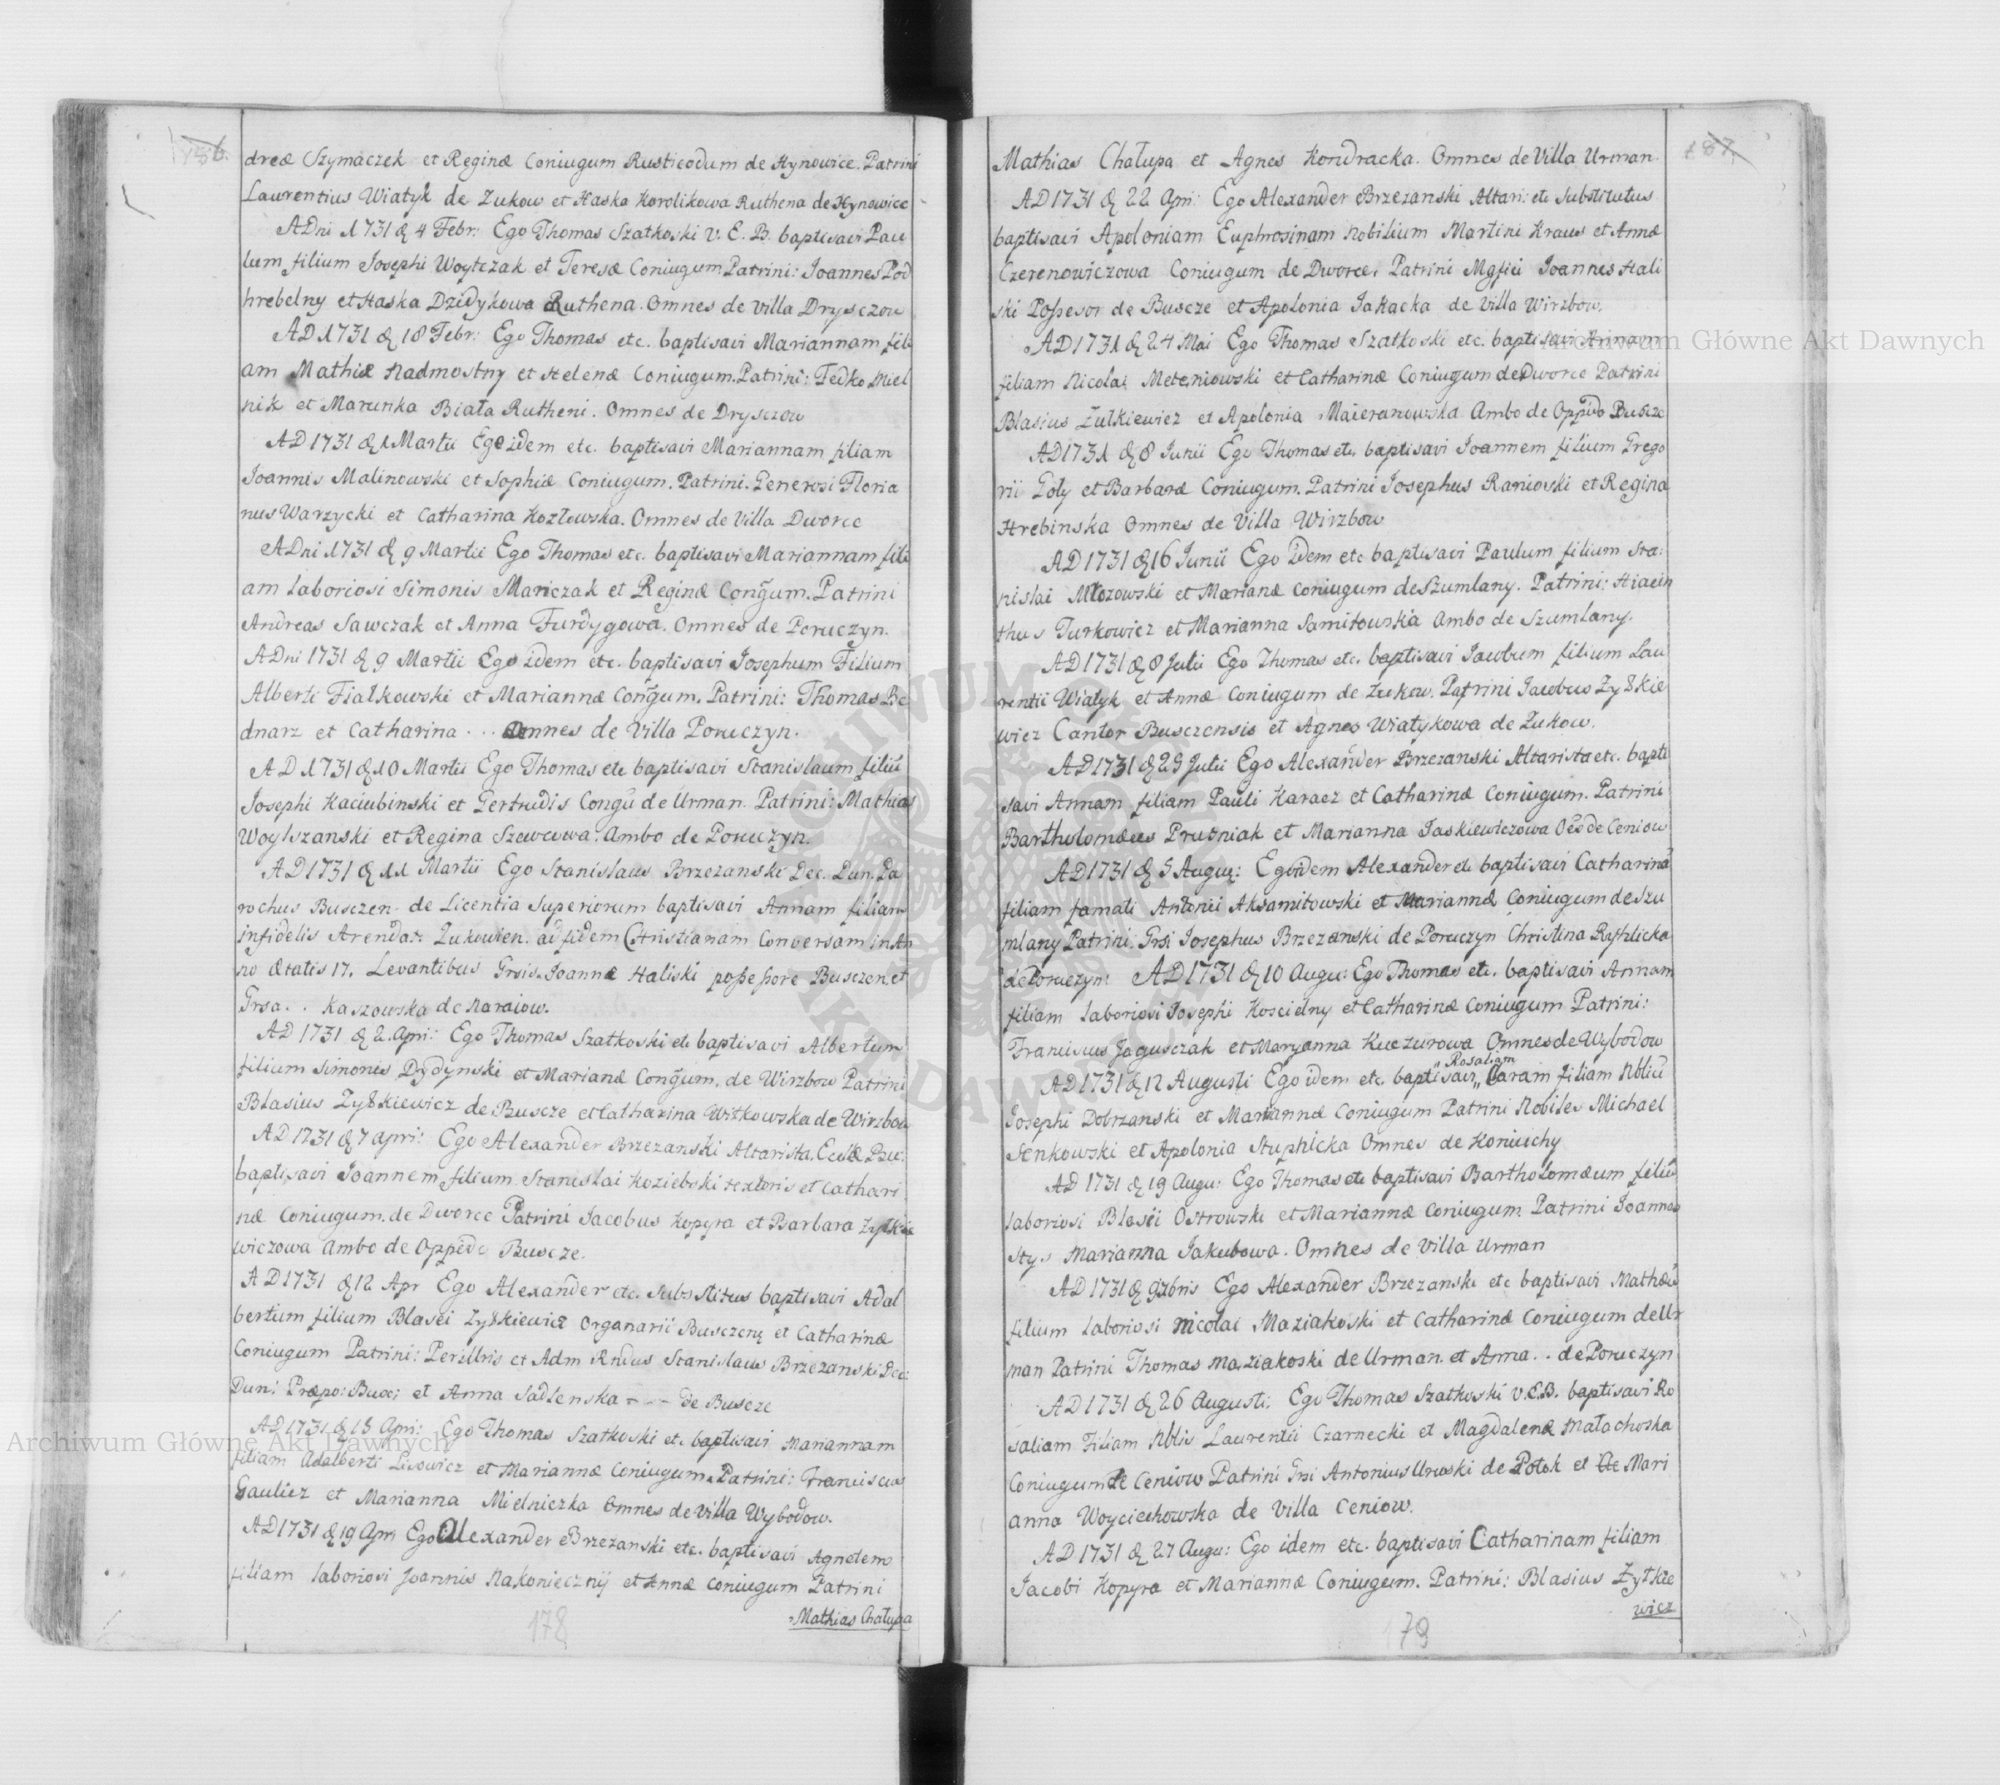 156.
dreæ Szymaczek et Reginæ Coniugum Rusticodum de Hynowice. Patrini
Laurentius Wiatyk de Zukow et Haska Korolikowa Ruthena de Hynowice
ADni 1731 & 4 Febr: Ego Thomas Szatkoski V. E. B. baptisavi Pau
lum filium Josephi Woytczak et Teresæ Coniugum Patrini: Joannes Pod
hrebelny et Haska Dzidykowa Ruthena. Omnes de Villa Dryszczow
AD 1731 & 18 Febr: Ego Thomas etc. baptisavi Mariannam fili
am Mathiæ Nadmostny et Helenæ Coniugum. Patrini: Fedko Miel
nik et Marunka Biała Rutheni. Omnes de Drysczow
AD 1731 & 1 Martii Ego idem etc. baptisavi Mariannam filiam
Joannis Malinowski et Sophiæ Coniugum. Patrini. Generosi Floria
nus Warzycki et Catharina Kozłowska. Omnes de Villa Dworce
ADni 1731 & 9 Martii Ego Thomas etc. baptisavi Mariannam fili
am Laboriosi Simonis Manczak et Reginæ Congum. Patrini
Andreas Sawczak et Anna Furdygowa. Omnes de Poruczyn.
ADni 1731 & 9 Martii Ego idem etc. baptisavi Josephum Filium
Alberti Fiałkowski et Mariannæ Congum. Patrini: Thomas Be
dnarz et Catharina . . . Omnes de Villa Poruczyn.
AD 1731 & 10 Martii Ego Thomas etc baptisavi Stanislaum filiū
Josephi Kaciubinski et Gertrudis Congū de Urman. Patrini: Mathias
Woylszanski et Regina Szewcowa. Ambo de Poruczyn.
AD 1731 & 11 Martii Ego Stanislaus Brzezanski Dec. Dun. Pa
rochus Busczen de Licentia Superiorum baptisavi Annam filiam
infidelis Arendat: Zukowien. ad fidem Christianam Conversam in An
no ætatis 17. Levantibus Grosis Joannæ Haliski possessore Busczen. et
Grsa . . Kaszowska de Naraiow.
AD 1731 & 2. Apri: Ego Thomas Szatkoski etc baptisavi Albertum
filium Simonis Dydynski et Marianæ Congum. de Wirzbow Patrini
Blasius Zyłkiewicz de Buscze et Catharina Witkowska de Wirzbow
AD 1731 & 7 apri: Ego Alexander Brzezanski Altarista. Eccsłæ Bus:
baptisavi Joannem filium Stanislai Koziebski textoris et Cathari
næ Coniugum. de Dworce Patrini Jacobus Kopyra et Barbara Zyłkie
wiczowa Ambo de Oppido Buscze.
AD 1731 & 12 Apr Ego Alexander etc. Substitus baptisavi Adal
bertum filium Blasei Zyłkiewicz Organarii Busczens et Catharinæ
Coniugum Patrini: Perillris et Adm Rndus Stanislaus Brzezanski Dec:
Dun: Præpo: Busc: et Anna Sadlenska - - - de Buscze
AD 1731 & 15 Apri: Ego Thomas Szatkoski etc. baptisavi Mariannam
filiam Adalberti Lisowicz et Mariannæ Coniugum. Patrini: Franciscus
Gaulicz et Marianna Mielniczka Omnes de Villa Wybodow.
AD 1731 & 19 Apri Ego Alexander Brzezanski etc. baptisavi Agnetem
filiam Laboriosi Joannis Nakoniecznij et Annæ Coniugum Patrini
Mathias Chałupa
178
187
Mathias Chałupa et Agnes Kondracka. Omnes de Villa Urman.
AD 1731 & 22 Apri: Ego Alexander Brzezanski Altari: etc Substitutus
baptisavi Apoloniam Euphrosinam Nobilium Martini Kraus et Annæ
Czerenowiczowa Coniugum de Dworce. Patrini Mgfici Joannes Hali
ski Possesor de Buscze et Apolonia Jakacka de Villa Wirzbow.
AD 1731 & 24 Mai Ego Thomas Szatkoski etc. baptisavi Annam
filiam Nicolai Meteniowski et Catharinæ Coniugum de Dworce Patrini
Blasius Zulkiewicz et Apolonia Maieranowska Ambo de Oppido Buscze
AD 1731 & 8 Junii Ego Thomas etc. baptisavi Joannem filium Grego
rii Goły et Barbaræ Coniugum. Patrini Josephus Raniovski et Regina
Hrebinska Omnes de Villa Wirzbow
AD 1731 & 16 Junii Ego idem etc baptisavi Paulum filium Sta:
nislai Mrozowski et Marianæ Coniugum de Szumlany. Patrini: Hiacin
thus Turkowicz et Marianna Samitowska Ambo de Szumlany.
AD 1731 & 8 Julii Ego Thomas etc. baptisavi Jacobum filium Lau
rentii Wiatyk et Annæ Coniugum de Zukow. Patrini Jacobus Zyłkie
wicz Cantor Busczensis et Agnes Wiatykowa de Zukow.
AD 1731 & 29 Julii Ego Alexander Brzezanski Altarista etc. bapti
savi Annam filiam Pauli Karacz et Catharinæ Coniugum. Patrini
Bartholomæus Prusniak et Marianna Jaskiewiczowa Oēs de Ceniow
AD 1731 & 5 Augus: Ego idem Alexander etc baptisavi Catharinā
filiam famati Antonii Aksamitowski et Mariannæ Coniugum de Szu
mlany Patrini: Grsi Josephus Brzezanski de Poruczyn Christina Rychlicka
de Poruczyn: AD 1731 & 10 Augu: Ego Thomas etc. baptisavi Annam
filiam Laboriosi Josephi Koscielny et Catharinæ Coniugum Patrini:
Franciscus Jagusczak et Maryanna Kuczurowa Omnes de Wybodow
Rosaliam
AD 1731 & 12 Augusti Ego idem etc. baptisavi „ Claram filiam Nbliū
Josephi Dobrzanski et Mariannæ Coniugum Patrini Nobiles Michael
Senkowski et Apolonia Stuphicka Omnes de Koniuchy
AD 1731 & 19 Augu: Ego Thomas etc baptisavi Bartholomæum filiū
Laboriosi Blasii Ostrowski et Mariannæ Coniugum. Patrini Joannes
Stys Marianna Jakubowa. Omnes de Villa Urman
AD 1731 & 9xbris Ego Alexander Brzezanski etc baptisavi Mathæū
filium Laboriosi Nicolai Maziakoski et Catharinæ Coniugum de Ur
man Patrini Thomas Maziakoski de Urman. et Anna . . de Poruczyn
AD 1731 & 26 Augusti: Ego Thomas Szatkoski V.E.B. baptisavi Ro
saliam Filiam Nblis Laurentii Czarnecki et Magdalenæ Małachoska
Coniugum de Ceniow Patrini Grsi Antonius Uruski de Potok et de Mari
anna Woyciechowska de Villa Ceniow.
AD 1731 & 27 Augu: Ego idem etc. baptisavi Catharinam filiam
Jacobi Kopyra et Mariannæ Coniugum. Patrini: Blasius Zyłkie
wicz
179
Archiwum Główne Akt Dawnych
Archiwum Główne Akt Dawnych
ARCHIWUM GŁÓWNE AKT DAWNYCH